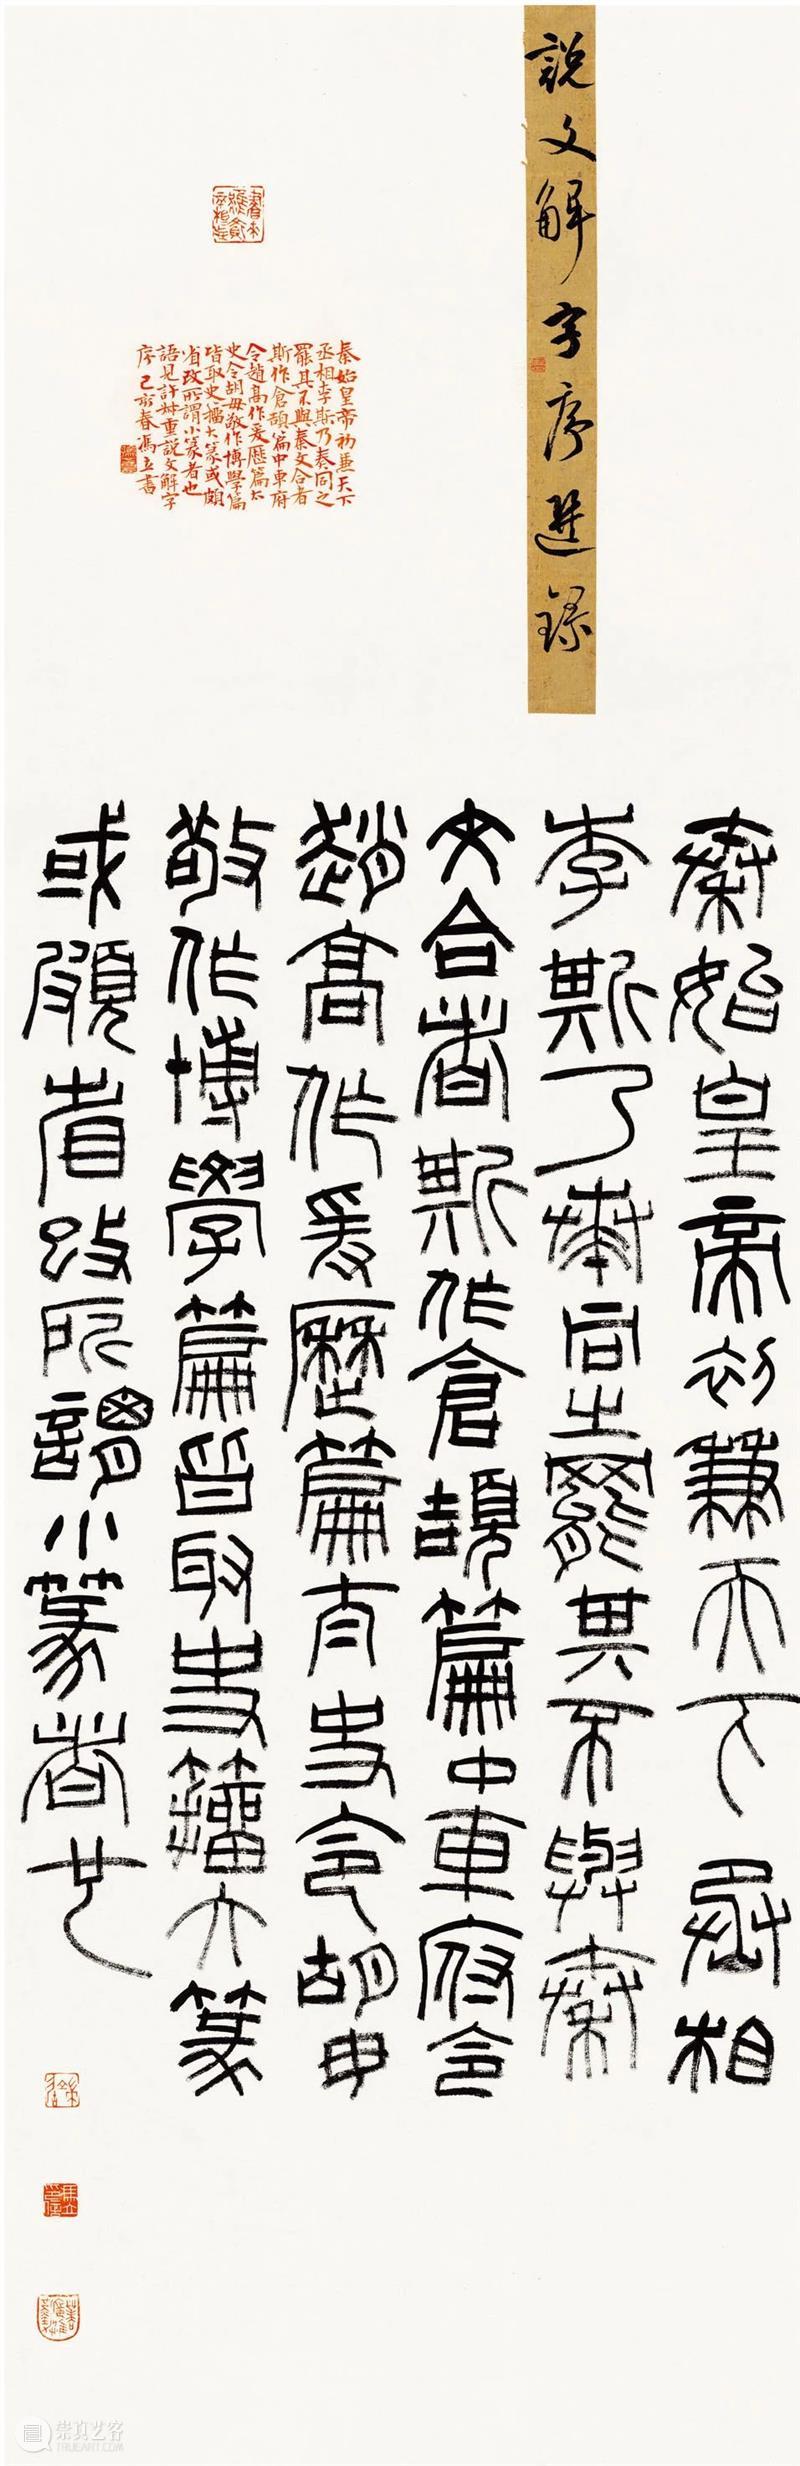 說文解字序選錄
秦始皇帝初兼天下
丞相李斯乃奏同之
罷其不與秦文合者
斯作倉頡篇中車府
令趙高作爰歷篇太
史令胡毋敬作博學篇
皆取史籀大篆或頗
省改所謂小篆者也
語見許叔重說文解字
序己亥春馮立書
秦始皇帝初兼天下丞相
李斯乃奏同之罷其不與秦
文合者斯作倉頡篇中車府令
趙高作爰歷篇太史令胡毋
敬作博學篇皆取史籀大篆
或頗省改所謂小篆者也
崇真艺客
TRUEART.COM